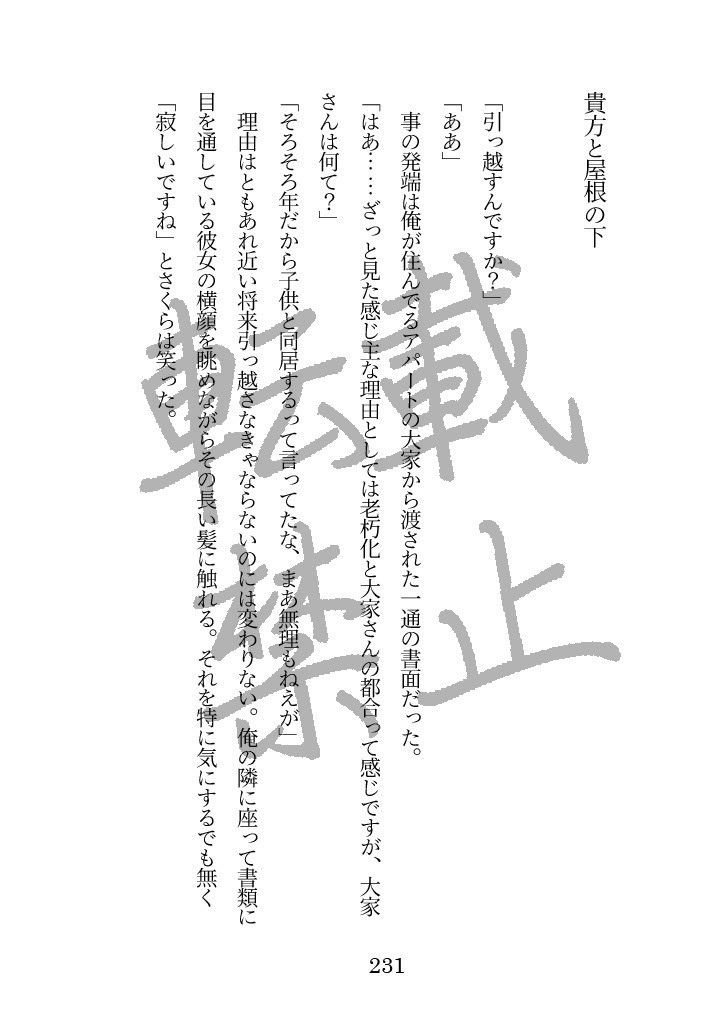 貴方と屋根の下
「引っ越すんですか？」
「ああ」
事の発端は俺が住んでるアパートの大家から渡された一通の書面だった。
「はあ……ざっと見た感じ主な理由としては老朽化と大家さんの都合って感じですが、大家
さんは何て？」
「そろそろ年だから子供と同居するって言ってたな、まあ無理もねえが」
理由はともあれ近い将来引っ越さなきゃならないのには変わりない。俺の隣に座って書類に
目を通している彼女の横顔を眺めながらその長い髪に触れる。それを特に気にするでも無く
「寂しいですね」とさくらは笑った。
転載
禁止
231